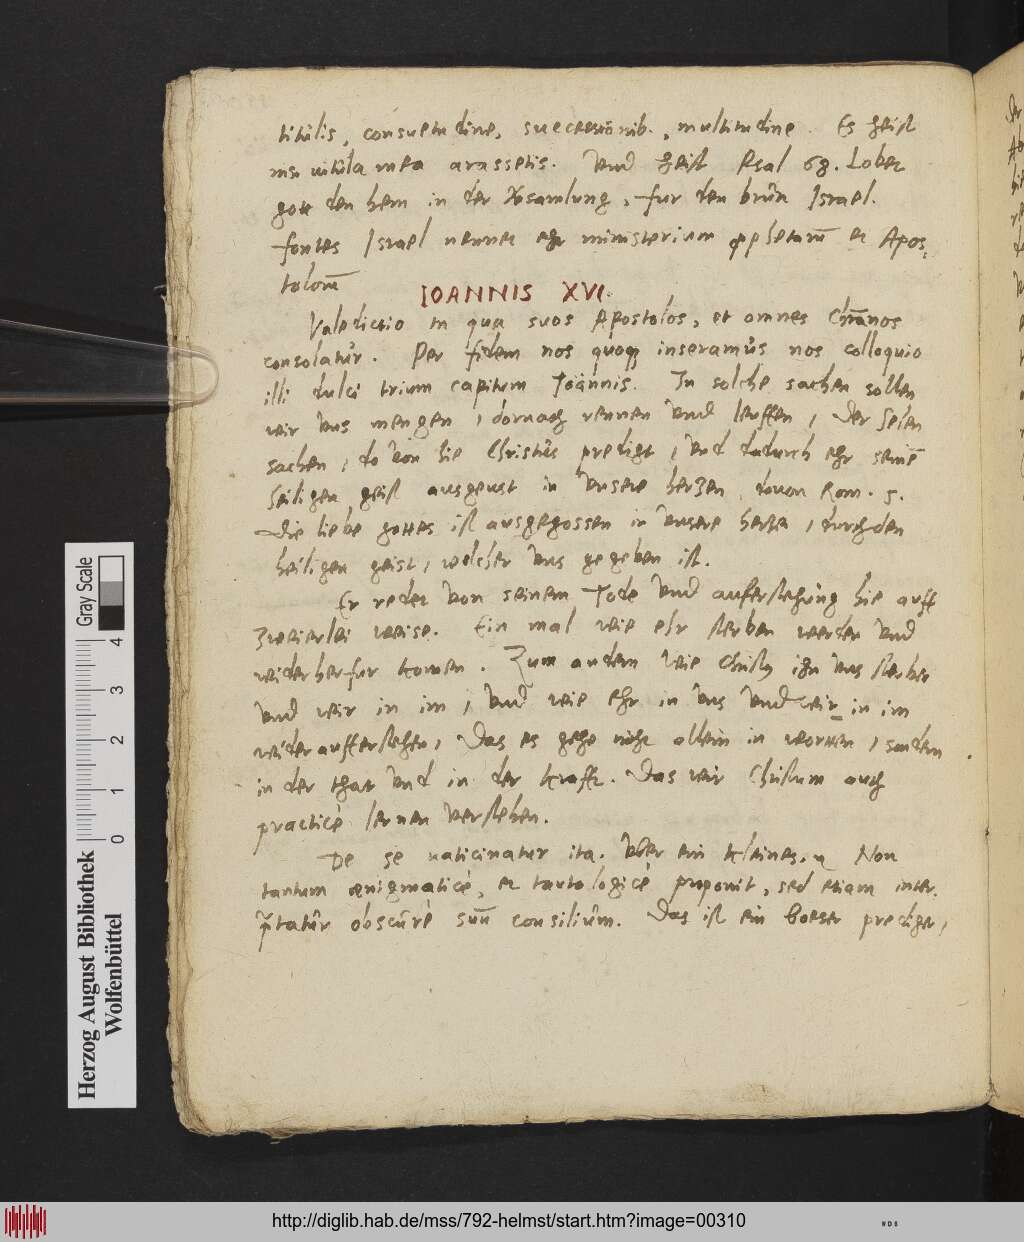 titulis, consuetudine, successionib., multitudine. Es heist
nisi vitula mea arassetis. Und heist Psal 68. Lobet
gott den hern in der Vsamlung, fur den brūn Israel.
fontes Israel nennet ehr ministerium pphetarū et Apos,
tolorū
IOANNIS XVI.
Valedictio in qua suos Apostolos, et omnes Chrānos
consolatur. Per fidem nos quoq inseramus nos colloquio
illi dulci trium capitum Joannis. In solche sachen sollen
wir uns mengen, dornach rennen und leuffen, der selen
sachen, do von hie Christus predigt, und dadurch ehr seinē
heiligen geist ausgeust in unsere herzen, davon Rom. 5.
Die liebe gottes ist ausgegossen in unsere hertze, durch den
heiligen geist, welcher uns gegeben ist.
Er redet von seinem Tode und auferstehung hie auff
zweierlei weise. Ein mal wie ehr sterben werden und
wider herfur komen. Zum andern wie Christus ihn uns sterbet
und wir in im, und wie ehr in uns und wir in im
wider aufferstehen, Das es gehe nicht allein in worten, sondern
in der that und in der krafft. Das wir Christum auch
practice lernen verstehen.
De se vaticinatur ita. Uber ein kleines. Non
tantum ænigmaticè, et tautologicè proponit, sed etiam inter.
p̄tatur obscurè suū consilium. Das ist ein boeser prediger,
Herzog August Bibliothek
Wolfenbüttel
Gray Scale
0 1 2 3 4
http://diglib.hab.de/mss/792-helmst/start.htm?image=00310